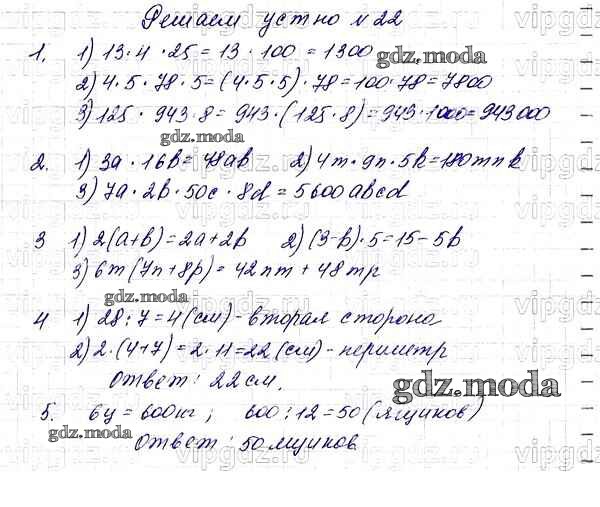 Решаем устно №22
1. 1) 13·4·25=13·100=1300
2) 4·5·78·5=(4·5·5)·78=100·78=7800
3) 125·943·8=943·(125·8)=943·1000=943000
gdz.moda
gdz.moda
2. 1) 3a·16b=48ab 2) 4m·9n·5k=180mnk
3) 7a·2b·50c·8d=5600abcd
3 1) 2(a+b)=2a+2b 2) (3-b)·5=15-5b
3) 6m(7n+8p)=42nm+48mp
gdz.moda
4 1) 28:7=4(см)-вторая сторона
2) 2·(4+7)=2·11=22(см)-периметр
Ответ: 22 см.
gdz.moda
5. 6ц=600кг; 600:12=50(ящиков)
gdz.moda
Ответ: 50 ящиков